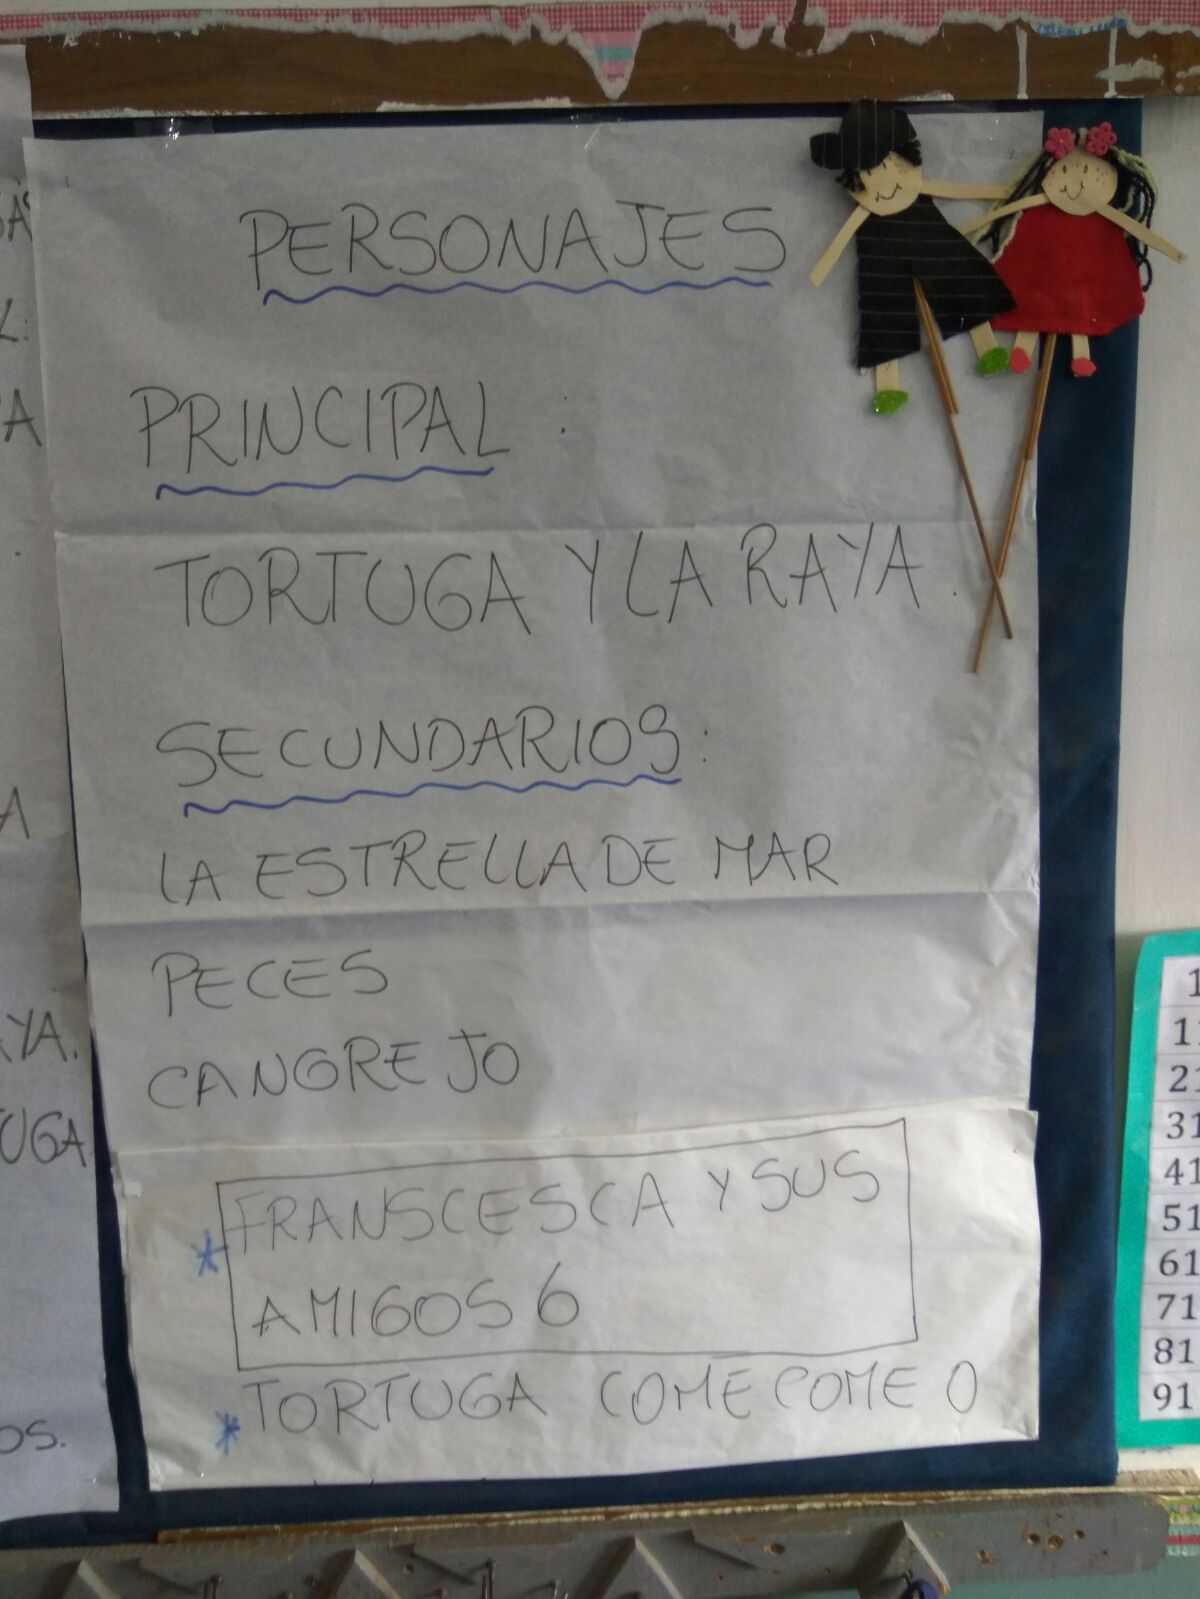 PERSONAJES
PRINCIPAL :
TORTUGA Y LA RAYA.
SECUNDARIOS:
LA ESTRELLA DE MAR
PECES
CANGREJO
* FRANSCESCA Y SUS
AMIGOS 6
* TORTUGA COME COME 0
YA.
TUGA
OS.
1
11
21
31
41
51
61
71
81
91